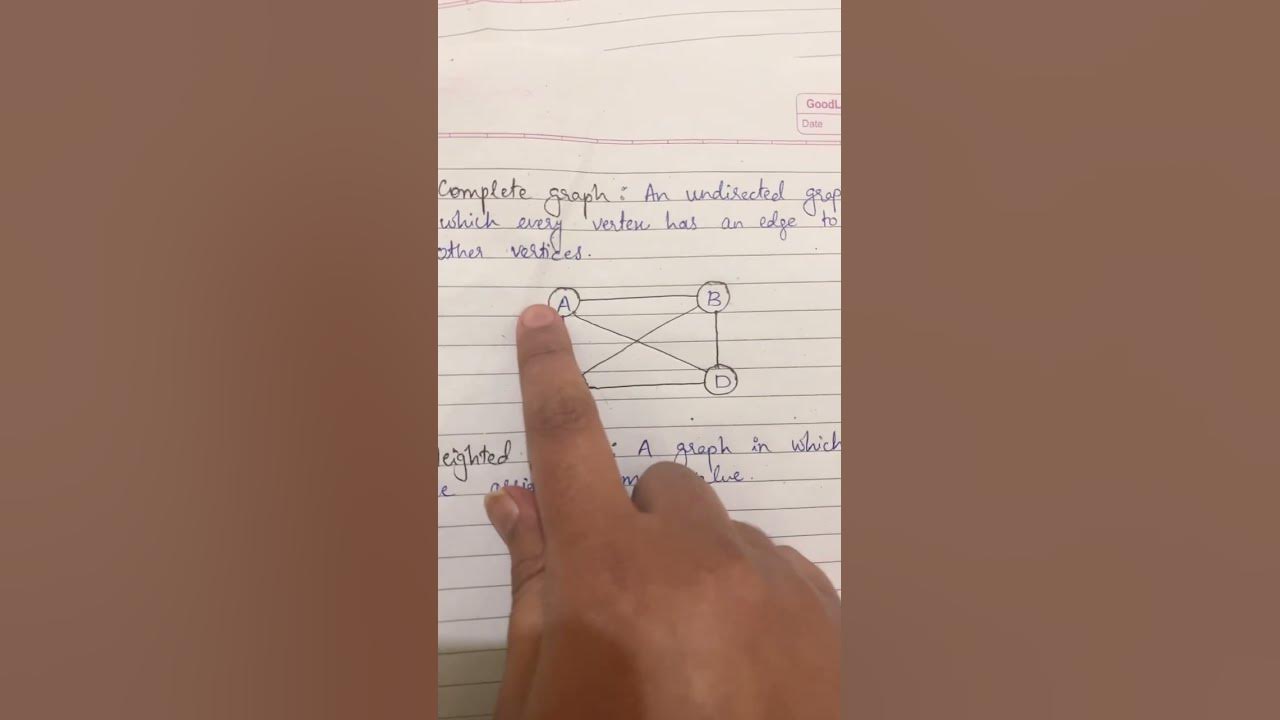 GoodL
Date
Complete graph : An undirected grap
which every vertex has an edge to
other vertices.
A B
D
eighted : A graph in which
e